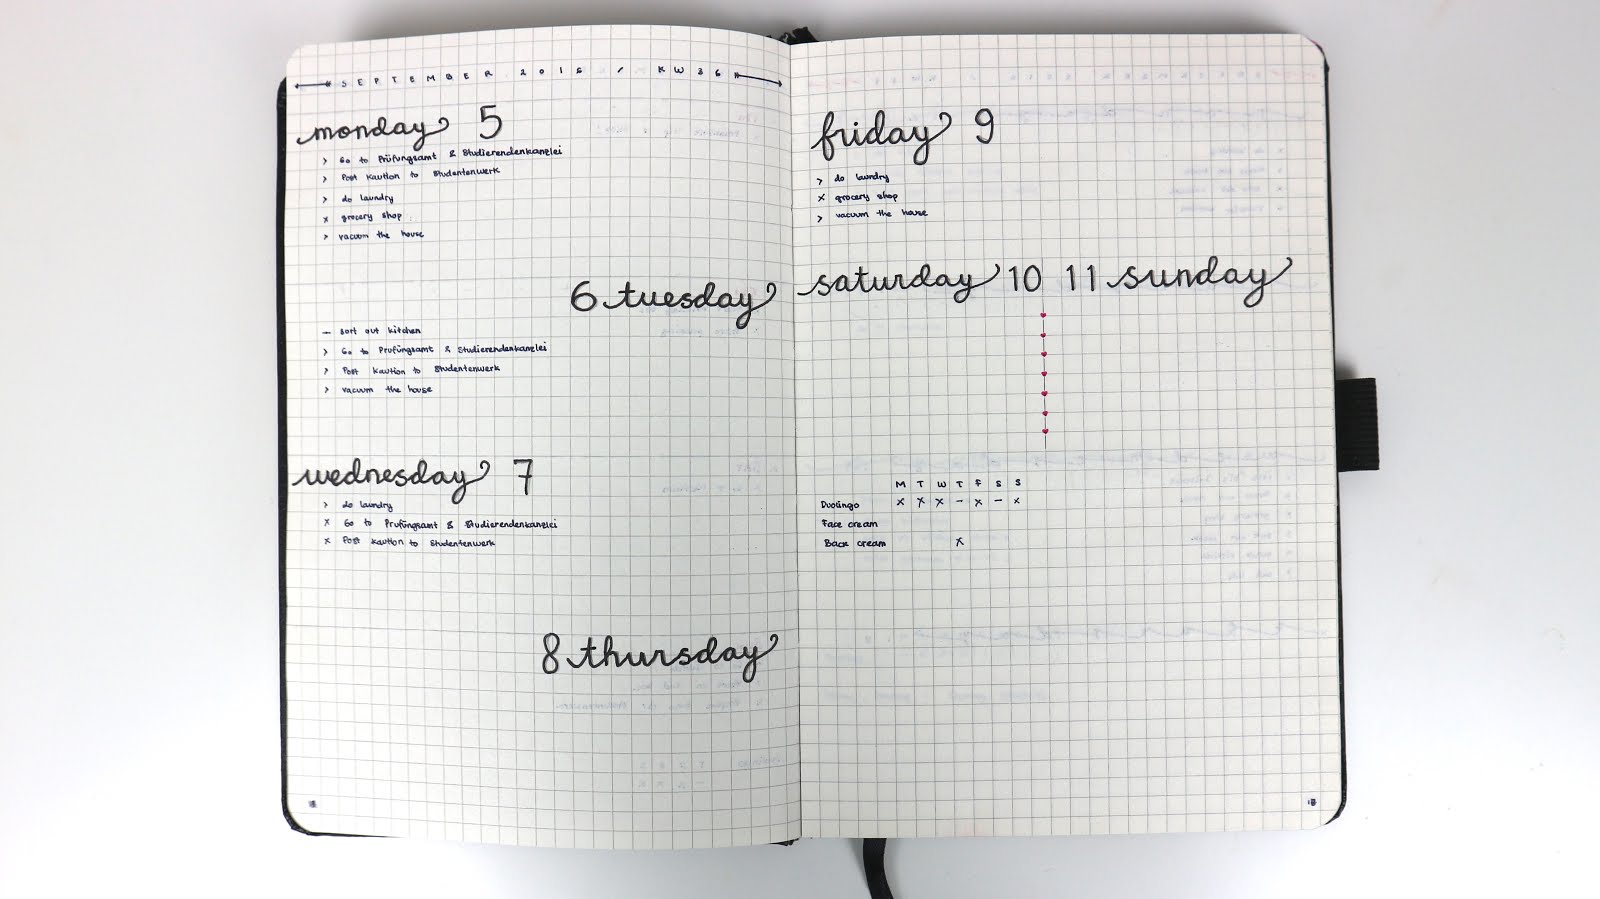 SEPTEMBER 2016 / KW36
monday 5
> Go to Prüfungsamt & Studierendenkanzlei
> Post Kaution to Studentenwerk
> do laundry
x grocery shop
> vacuum the house
6 tuesday
– sort out kitchen
> Go to Prüfungsamt & Studierendenkanzlei
> Post Kaution to Studentenwerk
> vacuum the house
wednesday 7
> do laundry
x Go to Prüfungsamt & Studierendenkanzlei
x Post Kaution to Studentenwerk
8 thursday
friday 9
> do laundry
x grocery shop
> vacuum the house
saturday 10 11 sunday
M T W T F S S
Duolingo x x x – x – x
Face cream
Back cream x